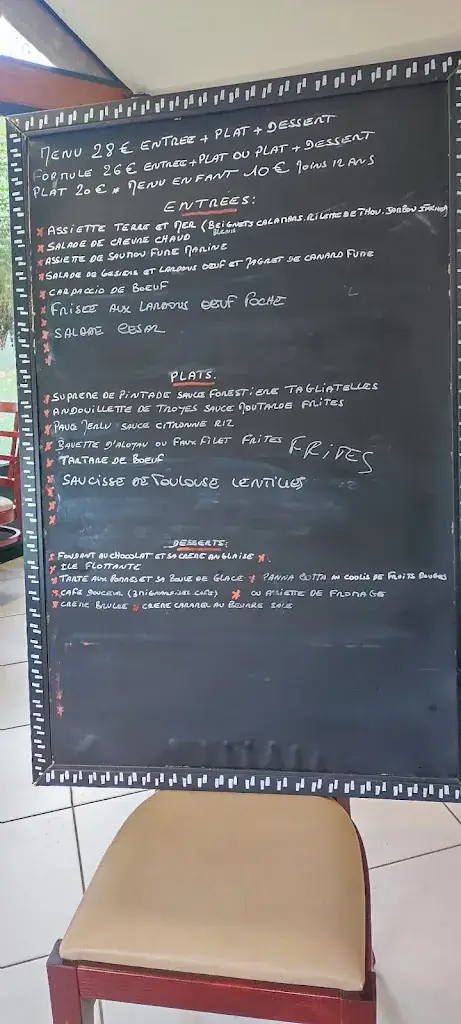 MENU 28 € ENTREE + PLAT + DESSERT
FORMULE 26 € ENTREE + PLAT OU PLAT + DESSERT
PLAT 20 € * MENU ENFANT 10 € MOINS 12 ANS
ENTREES:
* ASSIETTE TERRE ET MER (BEIGNETS CALAMARS. RILETTE DE THON. JAMBON SERRANO)
* SALADE DE CHEVRE CHAUD
* ASSIETTE DE SAUMON FUME MARINE
* SALADE DE GESIERS ET LARDONS OEUF ET MAGRET DE CANARD FUME
* CARPACCIO DE BOEUF
* FRISEE AUX LARDONS OEUF POCHE
* SALADE CESAR
PLATS.
* SUPREME DE PINTADE SAUCE FORESTIERE TAGLIATELLES
* ANDOUILLETTE DE TROYES SAUCE MOUTARDE FRITES
* PAVE MERLU SAUCE CITRONNE RIZ
* BAVETTE D'ALOYAU OU FAUX FILET FRITES
* TARTARE DE BOEUF FRITES
* SAUCISSE DE TOULOUSE LENTILLES
DESSERTS:
* FONDANT AU CHOCOLAT ET SA CREME ANGLAISE *
* ILE FLOTTANTE
* TARTE AUX POMMES ET SA BOULE DE GLACE * PANNA COTTA AU COULIS DE FRUITS ROUGES
* CAFE DOUCEUR (3 MIGNARDISES CAFE) * OU ASSIETTE DE FROMAGE
* CREME BRULEE * CREME CARAMEL AU BEURRE SALE